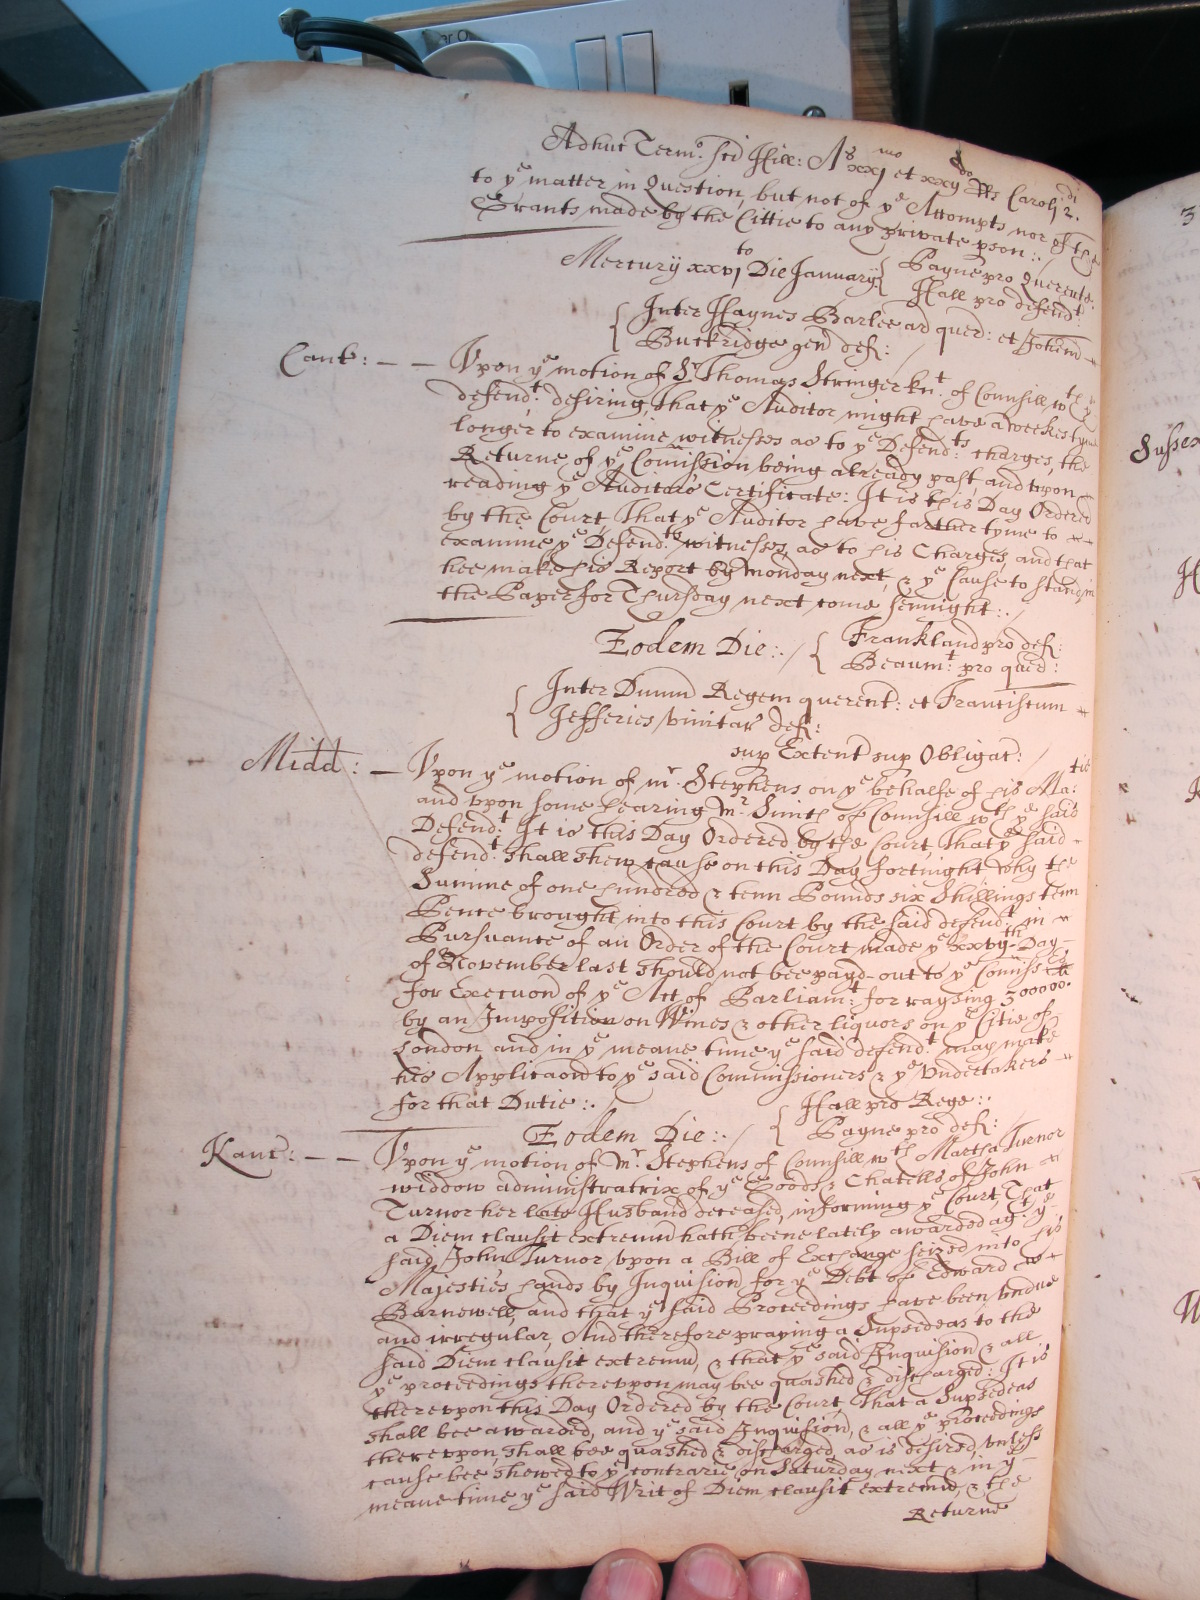 Adhuc Term:o Sci Hill: A:o xxj mo et xxij do RRs Caroli 2. di
to ye matter in Question, but not of ye Attempts nor of the
Grants made by the Cittie to any private pson :.
Mercurij xxvj to Die January { Payne pro Querente.
Hall pro defend:t
{ Inter Haynes Barlee ar quer: et Johem
Buckridge gen def:
Cant: — — Vpon ye motion of Sr Thomas Stringer Kn:t of Counsill wth ye
defend:t desiring, that ye Auditor might have a weekes tyme
longer to examine witnesses as to ye Defend:ts charges, the
Returne of ye Comission being already past, and vpon
reading ye Auditors Certificate: It is this Day Ordered
by the Court, That ye Auditor have farther tyme to
examine ye Defend:ts witnesses, as to his Charges, and that
hee make his Report by Monday next, & ye Cause to stand in
the Paper for Thursday next come sennight :.
Eodem Die :. / { Frankland pro def:
Beaum:t pro quer:
{ Inter Dnum Regem querent: et Franciscum
Jefferies vinitar def:
sup Extent sup Obligat: /
Midd: — Vpon ye motion of mr. Stephens on ye behalfe of his Ma:tie
and vpon some hearing Mr Smith of Counsill wth ye said
Defend:t It is this Day Ordered by the Court, that ye said
defend:t shall shew cause on this Day fortnight, why the
Summe of one hundred & tenn Pounds six Shillings tenn
Pence brought into this Court by the said defend:t in
Pursuance of an Order of the Court made ye xxvth Day
of November last should not bee payd out to ye Comiss
for Execucon of ye Act of Parliam:t for raysing 300000.
by an Imposition on Wines & other liquors on ye Citie of
London and in ye meane time ye said defend:t may make
his Applicacon to ye said Commissioners & ye Vndertakers
for that Dutie :. /
Eodem Die :. / { Hall pro Rege :.
Payne pro def:
Kanc: — — Vpon ye motion of Mr. Stephens of Counsill wth Martha Turnor
widdow administratrix of ye Goods & Chatells of John
Turnor her late Husband deceased, informing ye Court, That
a Diem clausit extremu hath beene lately awarded ag:t ye
said John Turnor vpon a Bill of Exchange seized into his
Majesties hands by Inquision for ye Debt of Edward
Barnewell, and that ye said Proceedings have been vndue
and irregular, And therefore praying a Supsedeas to the
said Diem clausit extremu, & that ye said Inquision & all
ye proceedings therevpon may bee quashed & discharged: It is
therevpon this Day Ordered by the Court That a Supsedeas
shall bee awarded, and ye said Inquision, & all ye proceedings
therevpon, shall bee quashed & discharged, as is desired, vnless
cause bee shewed to ye contrarie on Saturday next & in ye
meane time ye said Writ of Diem clausit extremu, & the
Returne
3
Sussex
H
W